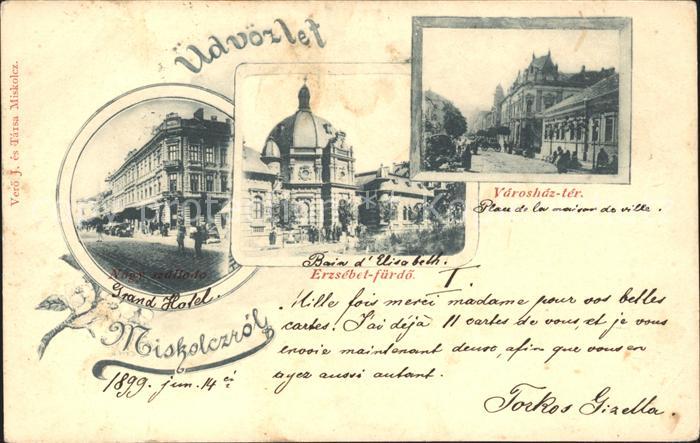 Üdvözlet
Verő J. és Társa Miskolcz.
Városház-tér.
Place de la maison de ville.
Nagy szálloda
Grand Hotel.
Bain d'Elisabeth.
Erzsébet-fürdő.
Miskolczról
1899. jun. 14 én
T.
Mille fois merci madame pour vos belles
cartes. J'ai déjà 11 cartes de vous, et je vous
envoie maintenant deuse, afin que vous en
ayez aussi autant.
Torkos Gizella.